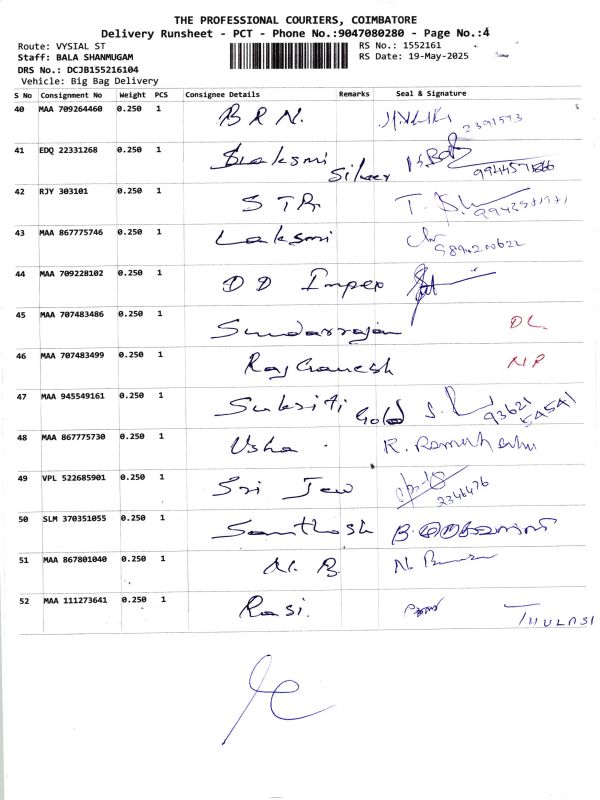 THE PROFESSIONAL COURIERS, COIMBATORE
Delivery Runsheet - PCT - Phone No.:9047080280 - Page No.:4
Route: VYSIAL ST
RS No.: 1552161
Staff: BALA SHANMUGAM
RS Date: 19-May-2025
DRS No.: DCJB155216104
Vehicle: Big Bag Delivery
S No Consignment No Weight PCS Consignee Details Remarks Seal & Signature
40 MAA 709264460 0.250 1 B R N. 2391573
41 EDQ 22331268 0.250 1 Slaksmi Silver
42 RJY 303101 0.250 1 S T R
43 MAA 867775746 0.250 1 Laksmi
44 MAA 709228102 0.250 1 D D Impex
45 MAA 707483486 0.250 1 Sundarrajan DL
46 MAA 707483499 0.250 1 Raj Ganesh NP
47 MAA 945549161 0.250 1 Gold 93621 54541
48 MAA 867775730 0.250 1 Usha
49 VPL 522685901 0.250 1 Sri Jew 2346476
50 SLM 370351055 0.250 1 Santhosh
51 MAA 867801040 0.250 1 N. B
52 MAA 111273641 0.250 1 Rasi. THULASI